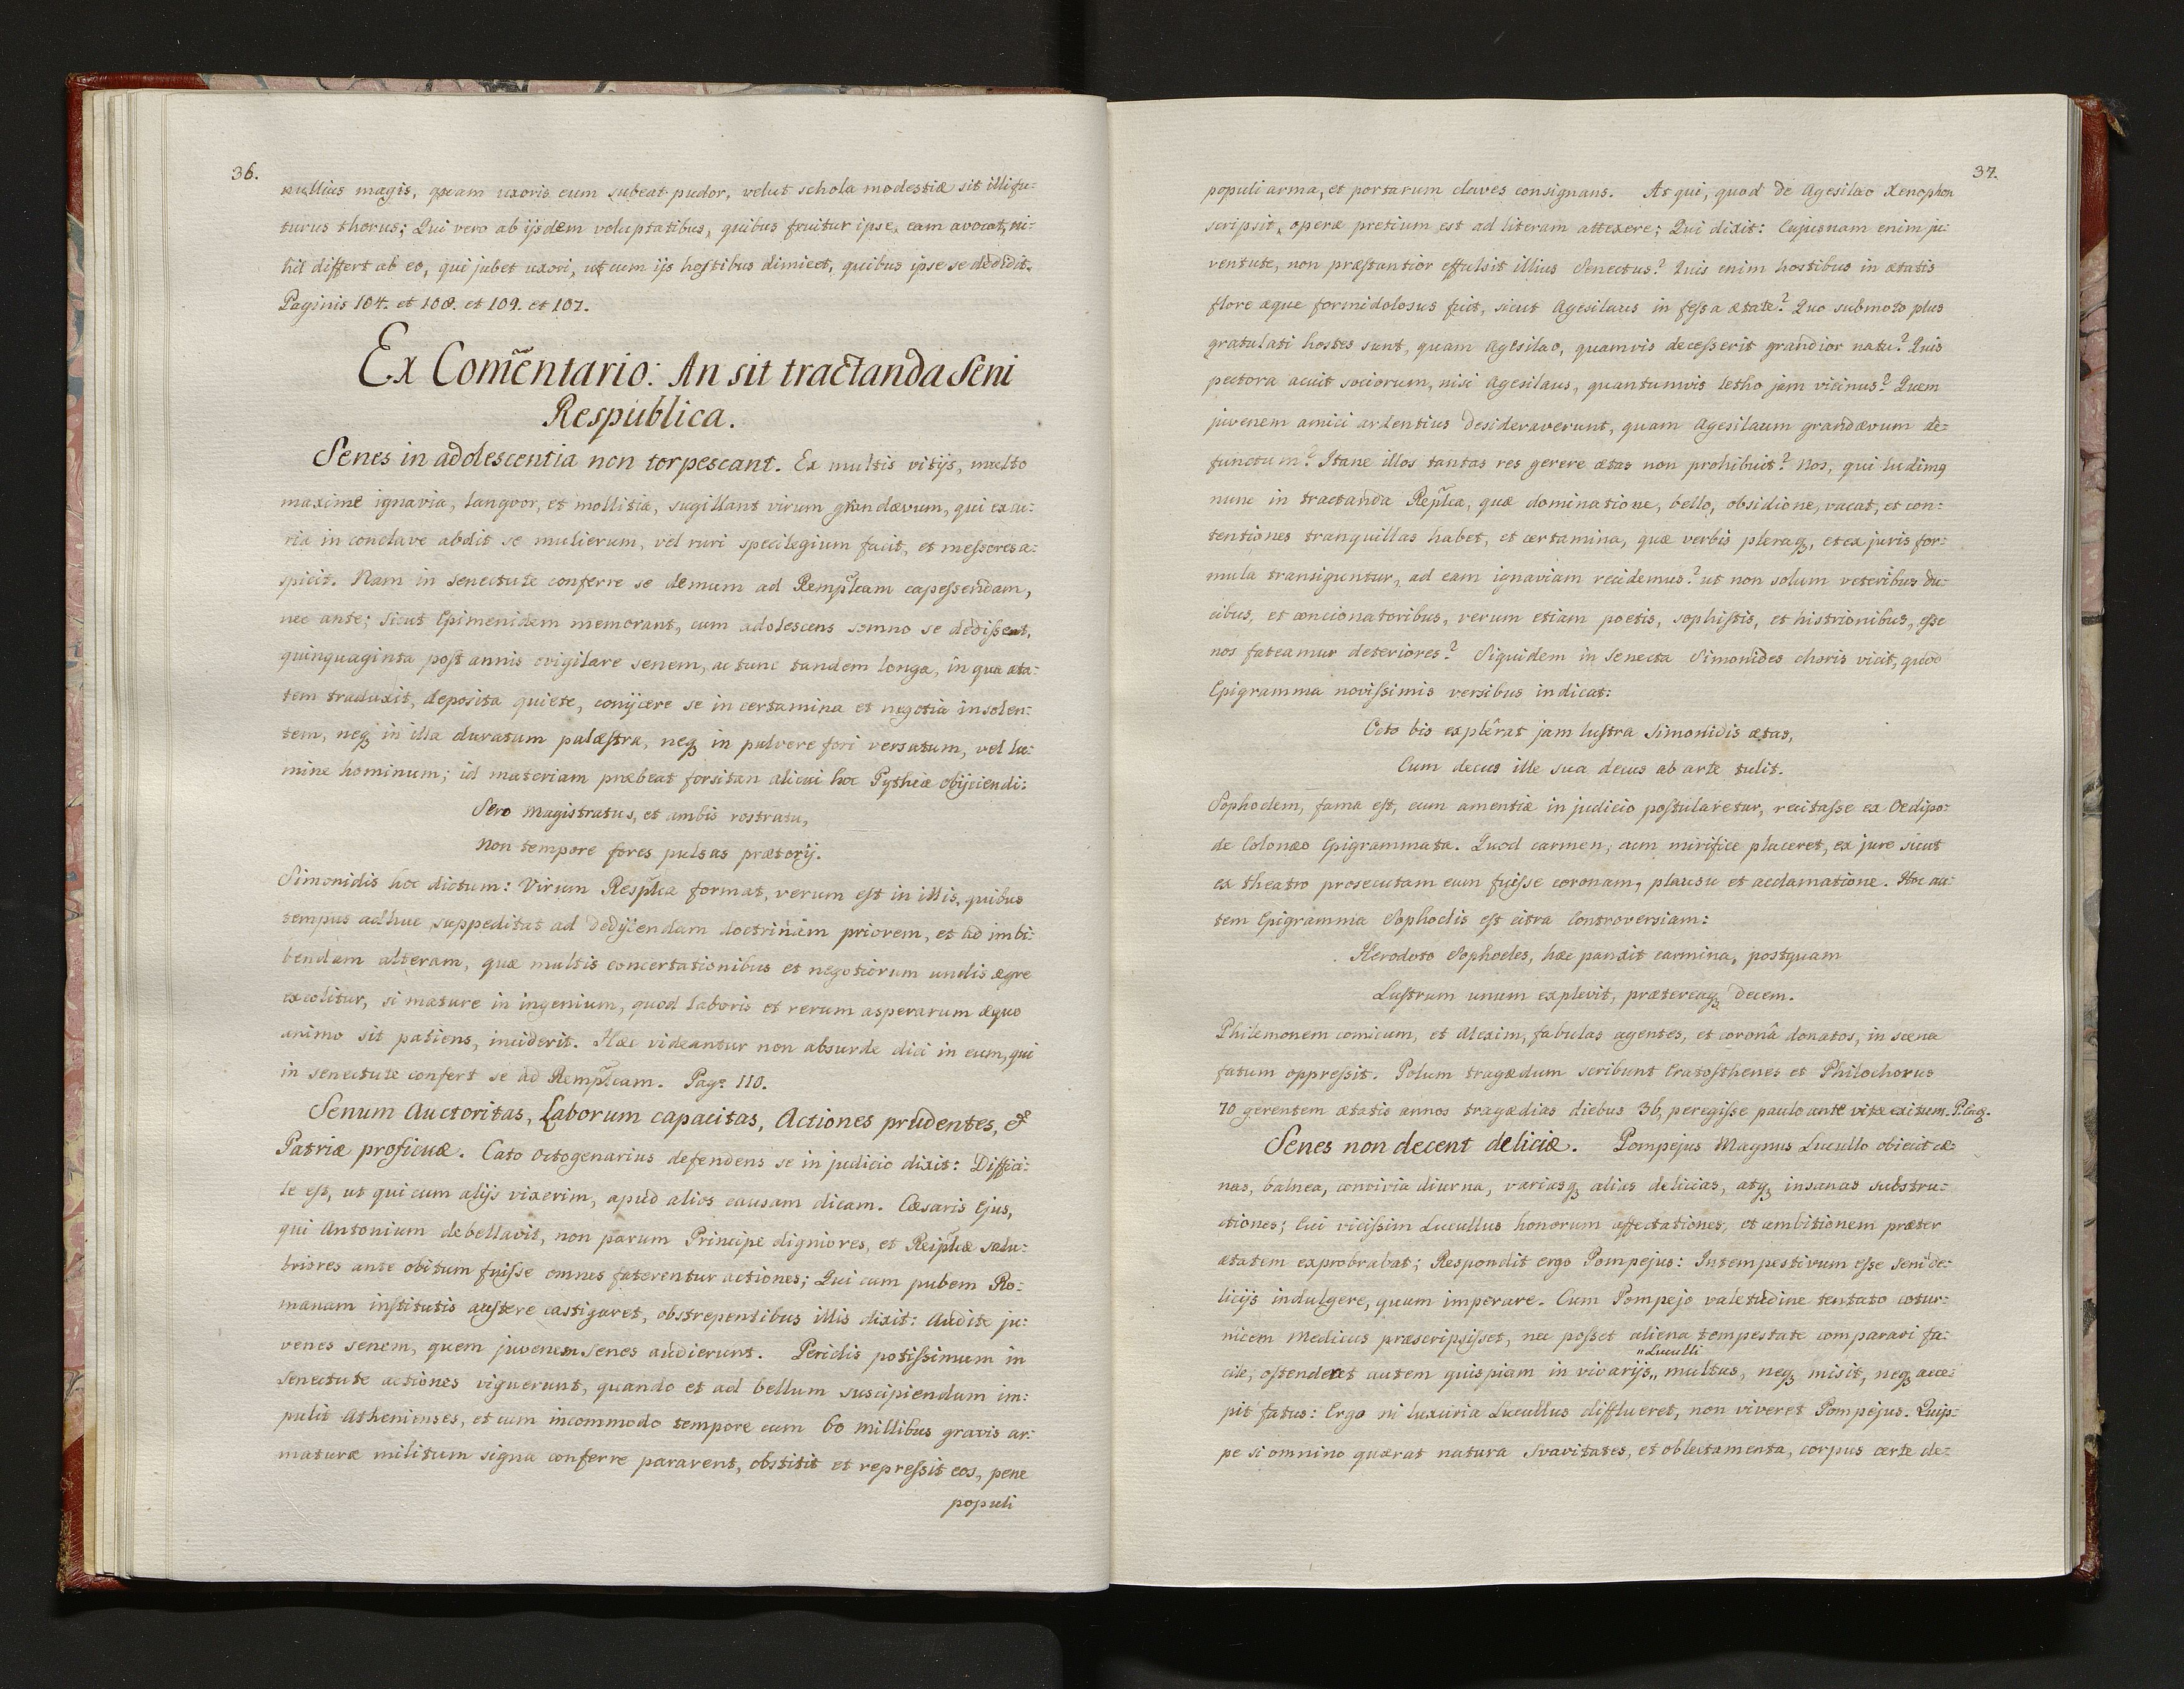 36.
nullius magis, quam uxoris eum subeat pudor, velut schola modestiæ sit illi fu:
turus thorus; Qui vero ab ijsdem voluptatibus, quibus fruitur ipse, eam avocat, ni:
hil differt ab eo, qui jubet uxori, ut cum ijs hostibus dimicet, quibus ipse se dedidit.
Paginis 104. et 108. et 109. et 107.
Ex Com̃entario: An sit tractanda Seni
Respublica.
Senes in adolescentia non torpescant. Ex multis vitijs, multo
maxime ignavia, langvor, et mollitia, sugillant virum grandævum, qui ex cu:
ria in conclave abdit se mulierum, vel ruri spicilegium facit, et messores a:
spicit. Nam in senectute conferre se demum ad Remp̃lcam capessendam,
nec ante; sicut Epimenidem memorant, cum adolescens somno se dedisset,
quinquaginta post annis evigilare senem, ac tunc tandem longa, in qua æta:
tem traduxit, deposita quiete, conijcere se in certamina et negotia insolen:
tem, neq́ in illa duratum palæstra, neq́ in pulvere fori versatum, vel lu:
mine hominum; id materiam præbeat forsitan alicui hoc Pythiæ obijciendi:
Sero Magistratus, et ambis rostratu,
Non tempore fores pulsas prætorij.
Simonidis hoc dictum: Virum Resp̃lca format, verum est in illis, quibus
tempus adhuc suppeditat ad dedijcendam doctrinam priorem, et ad imbi:
bendam alteram, quæ multis concertationibus et negotiorum undis ægre
excolitur, si mature in ingenium, quod laboris et rerum asperarum æquo
animo sit patiens, inciderit. Hæc videantur non absurde dici in eum, qui
in senectute confert se ad Remp̃lcam. Pag: 110.
Senum Auctoritas, Laborum capacitas, Actiones prudentes, &
Patriæ proficuæ. Cato octogenarius defendens se in judicio dixit: Diffici:
le est, ut qui cum alijs vixerim, apud alios causam dicam. Cæsaris Ejus,
qui Antonium debellavit, non parum Principe digniores, et Reip̃lcæ salu:
briores ante obitum fuisse omnes faterentur actiones; Qui cum pubem Ro:
manam institutis austere castigaret, obstrepentibus illis dixit: Audite ju:
venes senem, quem juvenem senes audierunt. Periclis potissimum in
Senectute actiones viguerunt, quando et ad bellum suscipiendum im:
pulit Athenienses, et cum incommodo tempore cum 60 millibus gravis ar:
maturæ militum signa conferre pararent, obstitit et repressit eos, pene
populi
37.
populi arma, et portarum claves consignans. At qui, quod de Agesilao Xenophon
scripsit, operæ pretium est ad literam attexere; Qui dixit: Cujusnam enim ju:
ventute, non præstantior effulsit illius Senectus? Quis enim hostibus in ætatis
flore æque formidolosus fuit, sicut Agesilaus in fessa ætate? Quo submoto plus
gratulati hostes sunt, quam Agesilao, quamvis decesserit grandior natu? Quis
pectora acuit sociorum, nisi Agesilaus, quantumvis letho jam vicinus? Quem
juvenem amici ardentius desideraverunt, quam Agesilaum grandævum de:
functum? Itane illos tantas res gerere ætas non prohibuit? Nos, qui ludimq
nunc in tractanda Rep̃lca, quæ dominatione, bello, obsidione, vacat, et con:
tentiones tranquillas habet, et certamina, quæ verbis pleraq́, et ex juris for:
mula transiguntur, ad eam ignaviam recidemus? ut non solum veteribus du:
cibus, et concionatoribus, verum etiam poetis, sophistis, et histrionibus, esse
nos fateamur deteriores? Siquidem in Senecta Simonides choris vicit, quod
Epigramma novissimis versibus indicat:
Octo bis explêrat jam lustra Simonidis ætas,
Cum decus ille sua decus ab arte tulit.
Sophoclem, fama est, cum amentiæ in judicio postularetur, recitasse ex Oedipo:
de Colonæo Epigrammata. Quod carmen, cum mirifice placeret, ex jure sicut
ex theatro prosecutam eum fuisse coronam, plausu et acclamatione. Hoc au:
tem Epigramma Sophoclis est citra Controversiam:
Herodoto Sophocles, hæc panxit carmina, postquam
Lustrum unum explevit, prætereaq́ decem.
Philemonem comicum, et Alexim, fabulas agentes, et coronâ donatos, in scena
fatum oppressit. Polum tragædum scribunt Eratosthenes et Philochorus
70 gerentem ætatis annos tragædias diebus 36, peregisse paulo ante vitæ exitum. P. Ead.
Senes non decent deliciæ. Pompejus Magnus Lucullo obiecit cæ:
nas, balnea, convivia diurna, variasq́ alias delicias, atq́ insanas substru:
ctiones; Cui vicissim Lucullus honorum affectationes, et ambitionem præter
ætatem exprobrabat; Respondit ergo Pompejus: Intempestivum esse seni de:
licijs indulgere, quam imperare. Cum Pompejo valetudine tentato cotur:
nicem Medicus præscripsisset, nec posset aliena tempestate comparari fa:
"Luculli
cile, ostenderet autem quispiam in vivarijs,, multas, neq́ misit, neq́ acce:
pit fatus: Ergo ni luxuria Lucullus difflueret, non viveret Pompejus. Quip:
pe si omnino quærat natura Svavitates, et oblectamenta, corpus certe de: